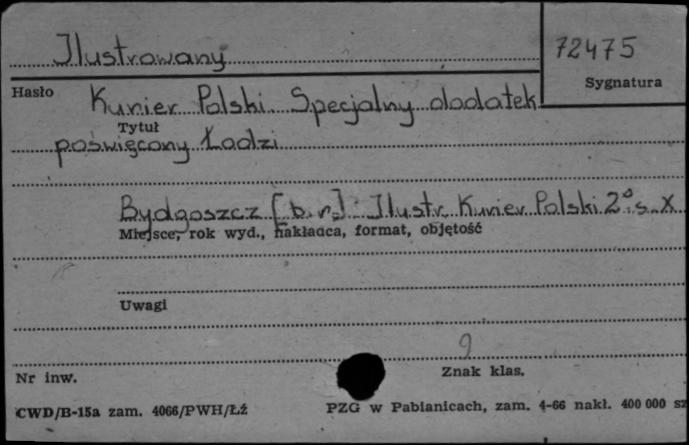 Ilustrowany
72475
Hasło
Sygnatura
Kurier Polski. Specjalny dodatek
Tytuł
poświęcony Łodzi
Bydgoszcz [b.r.] Ilustr. Kurier Polski 2° s. X
Miejsce, rok wyd., nakładca, format, objętość
Uwagi
9
Nr inw.
Znak klas.
CWD/B-15a zam. 4066/PWH/Łź
PZG w Pabianicach, zam. 4-66 nakł. 400 000 sz